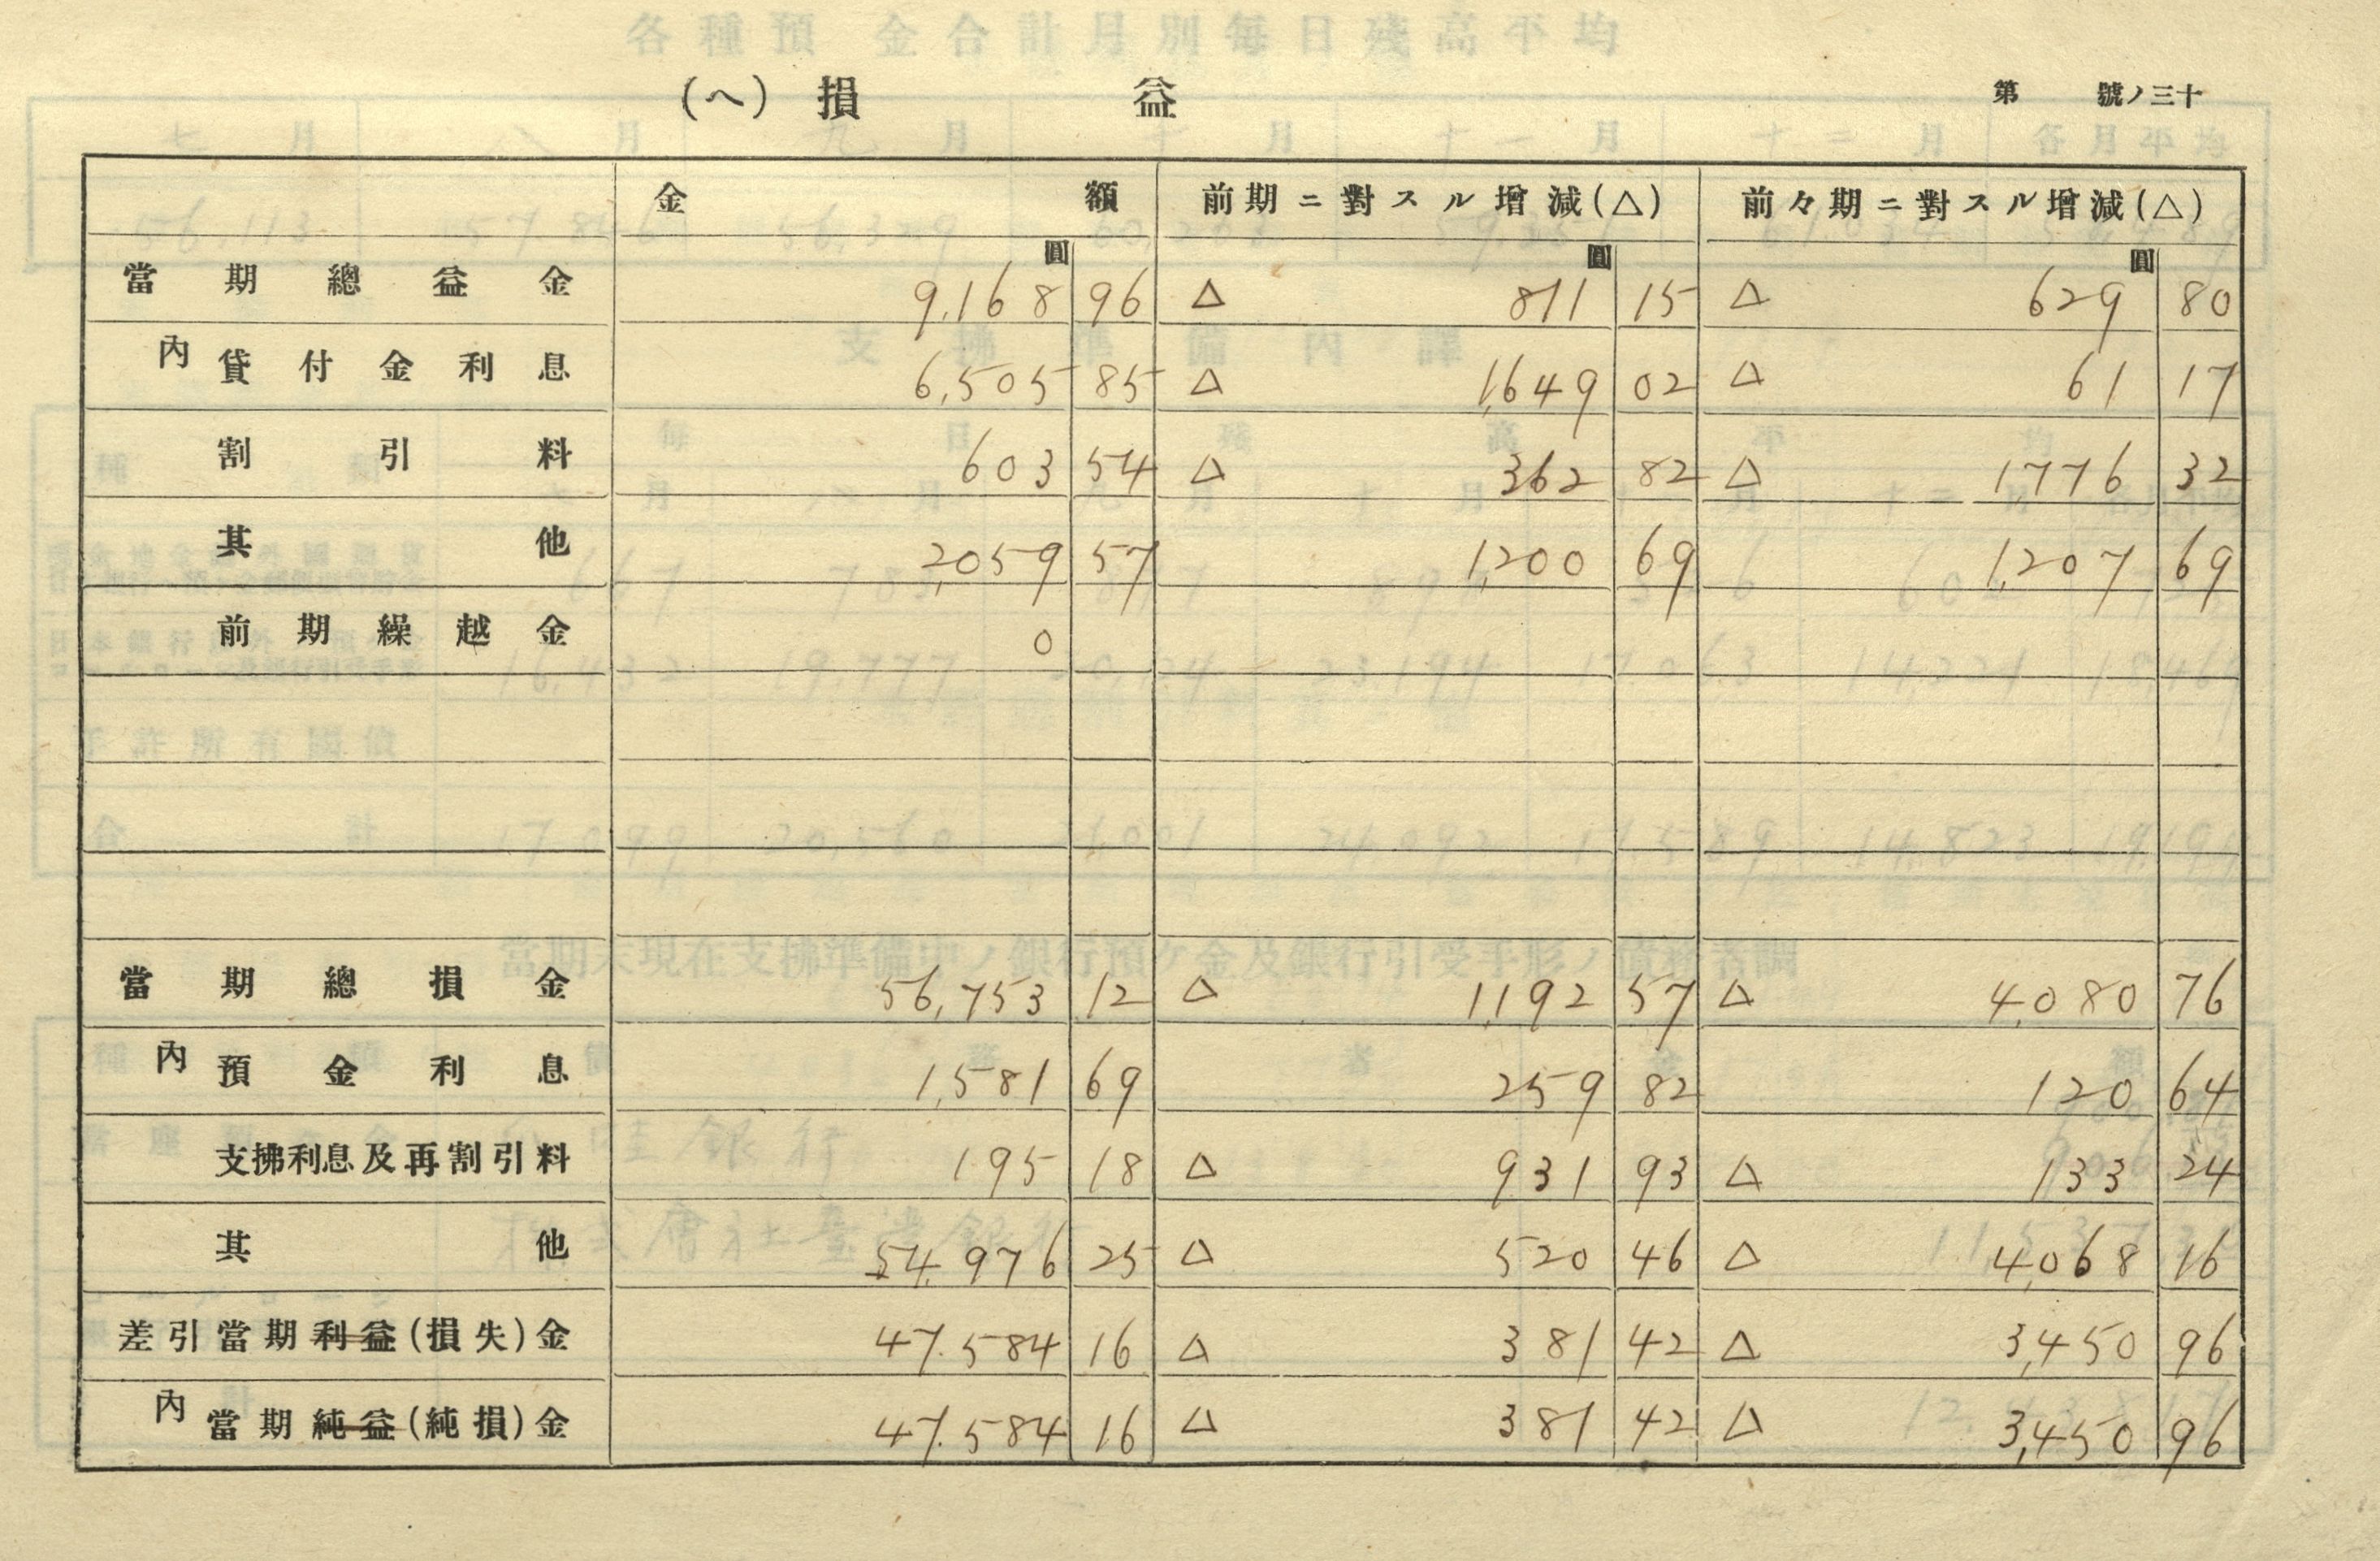 (ヘ) 損 益
第 號ノ三十
金 額 前期ニ對スル增減(△) 前々期ニ對スル增減(△)
圓 圓 圓
當期總益金 9,168 96 △ 811 15 △ 629 80
內 貸付金利息 6,505 85 △ 1,649 02 △ 61 17
割引料 603 54 △ 362 82 △ 1,776 32
其他 2,059 57 1,200 69 1,207 69
前期繰越金 0
當期總損金 56,753 12 △ 1,192 57 △ 4,080 76
內 預金利息 1,581 69 259 82 120 64
支拂利息及再割引料 195 18 △ 931 93 △ 133 24
其他 54,976 25 △ 520 46 △ 4,068 16
差引當期利益(損失)金 47.584 16 △ 381 42 △ 3,450 96
內 當期純益(純損)金 47.584 16 △ 381 42 △ 3,450 96